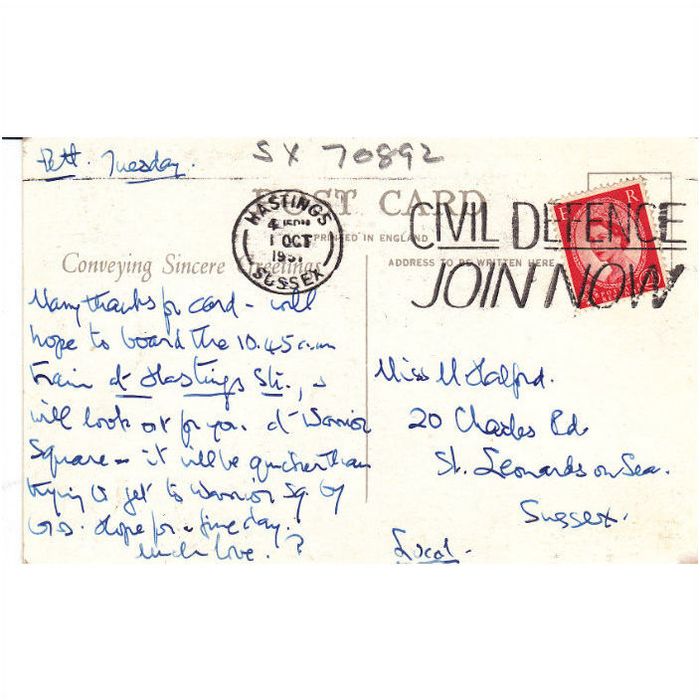 Pett. Tuesday.
SX 70892
POST CARD
HASTINGS
1 OCT
SUSSEX
PRINTED IN ENGLAND
CIVIL DEFENCE
JOIN NOW
E R
Conveying Sincere Greetings
ADDRESS TO BE WRITTEN HERE
Many thanks for card - will
hope to board the 10.45 a.m
train at Hastings Stn., &
will look out for you at Warrior
Square - it will be quicker than
trying to get to Warrior Sq. by
Hope for a fine day.
Much love.
Miss M Halford.
20 Charles Rd
St. Leonards on Sea.
Sussex.
Local.